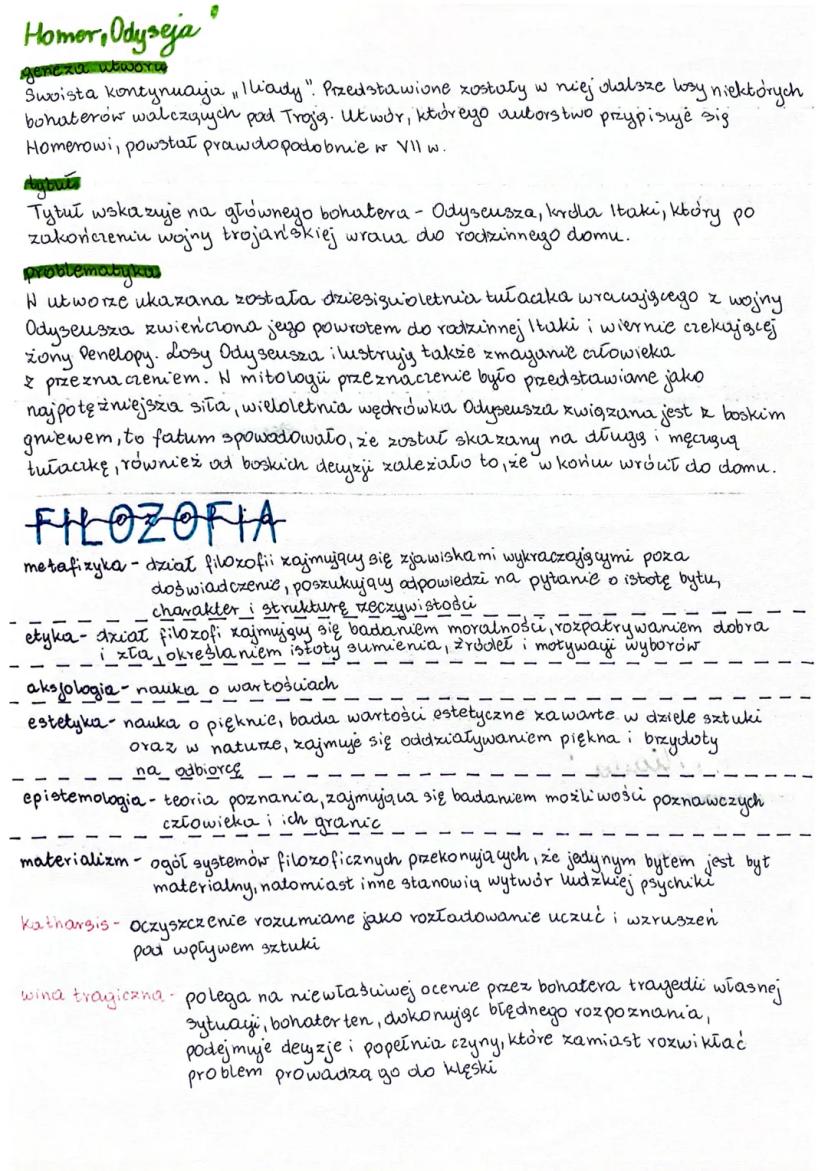 Homer, Odyseja
geneza utworu
Swoista kontynuacja „Iliady". Przedstawione zostały w niej dalsze losy niektórych
bohaterów walczących pod Troją. Utwór, którego autorstwo przypisuje się
Homerowi, powstał prawdopodobnie w VII w.
tytuł
Tytuł wskazuje na głównego bohatera - Odyseusza, króla Itaki, który po
zakończeniu wojny trojańskiej wraca do rodzinnego domu.
problematyka
W utworze ukazana została dziesięcioletnia tułaczka wracającego z wojny
Odyseusza zwieńczona jego powrotem do rodzinnej Itaki i wiernie czekającej
żony Penelopy. Losy Odyseusza ilustrują także zmaganie człowieka
z przeznaczeniem. W mitologii przeznaczenie było przedstawiane jako
najpotężniejsza siła, wieloletnia wędrówka Odyseusza związana jest z boskim
gniewem, to fatum spowodowało, że został skazany na długą i męczącą
tułaczkę, również od boskich decyzji zależało to, że w końcu wrócił do domu.
FILOZOFIA
metafizyka - dział filozofii zajmujący się zjawiskami wykraczającymi poza
doświadczenie, poszukujący odpowiedzi na pytanie o istotę bytu,
charakter i strukturę rzeczywistości
etyka - dział filozofi zajmujący się badaniem moralności, rozpatrywaniem dobra
i zła, określaniem istoty sumienia, źródeł i motywacji wyborów
aksjologia - nauka o wartościach
estetyka - nauka o pięknie, bada wartości estetyczne zawarte w dziele sztuki
oraz w naturze, zajmuje się oddziaływaniem piękna i brzydoty
na odbiorcę
epistemologia - teoria poznania, zajmująca się badaniem możliwości poznawczych
człowieka i ich granic
materializm - ogół systemów filozoficznych przekonujących, że jedynym bytem jest byt
materialny, natomiast inne stanowią wytwór ludzkiej psychiki
katharsis - oczyszczenie rozumiane jako rozładowanie uczuć i wzruszeń
pod wpływem sztuki
wina tragiczna - polega na niewłaściwej ocenie przez bohatera tragedii własnej
sytuacji, bohater ten, dokonując błędnego rozpoznania,
podejmuje decyzje i popełnia czyny, które zamiast rozwikłać
problem prowadzą go do klęski